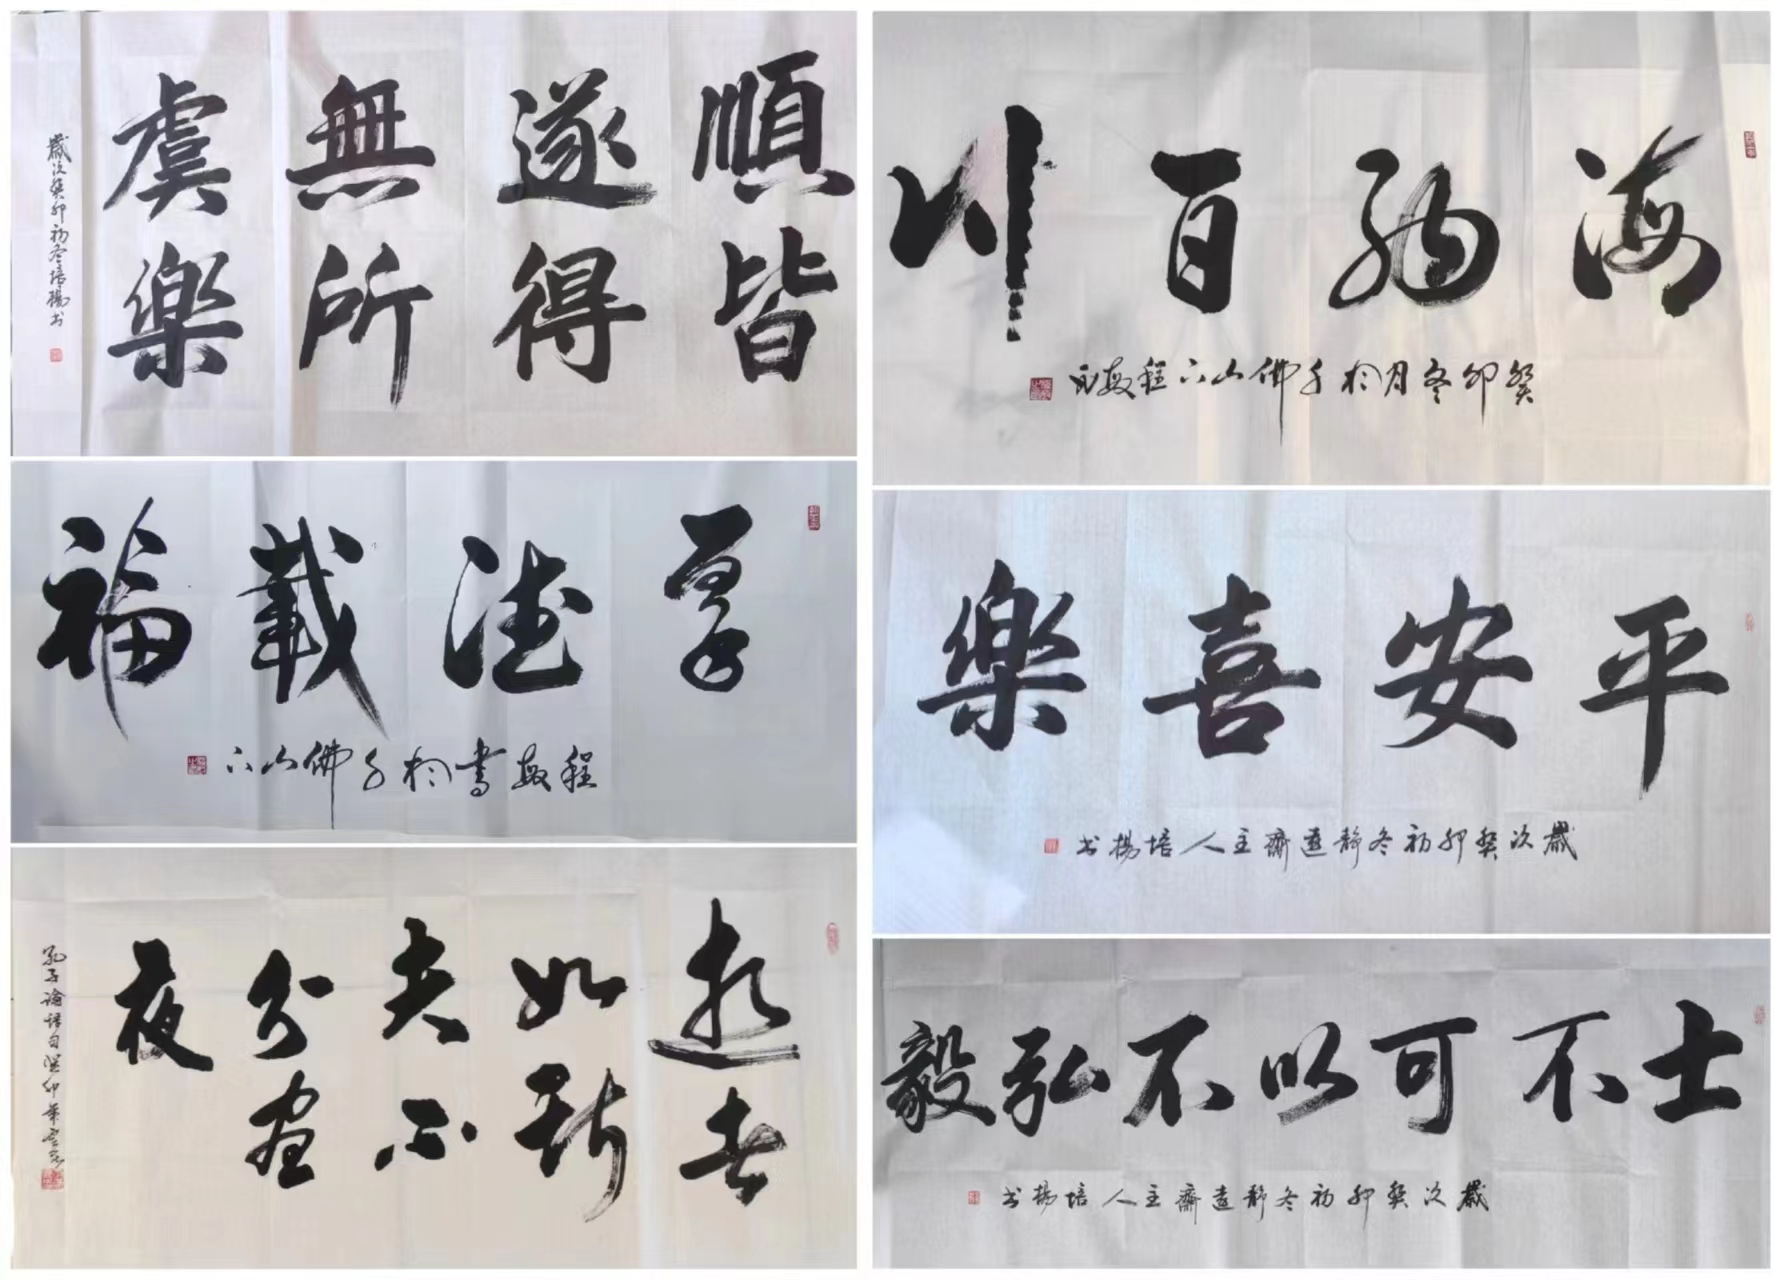 順皆
遂得
無所
虞樂
歲次癸卯初冬培楊书
海納百川
癸卯冬月於千佛山下程敏
厚德載福
程敏書於千佛山下
平安喜樂
歲次癸卯初冬靜遠齋主人培楊书
逝者
如斯
夫不
舍晝
夜
孔子論語句癸卯年
士不可以不弘毅
歲次癸卯初冬靜遠齋主人培楊书